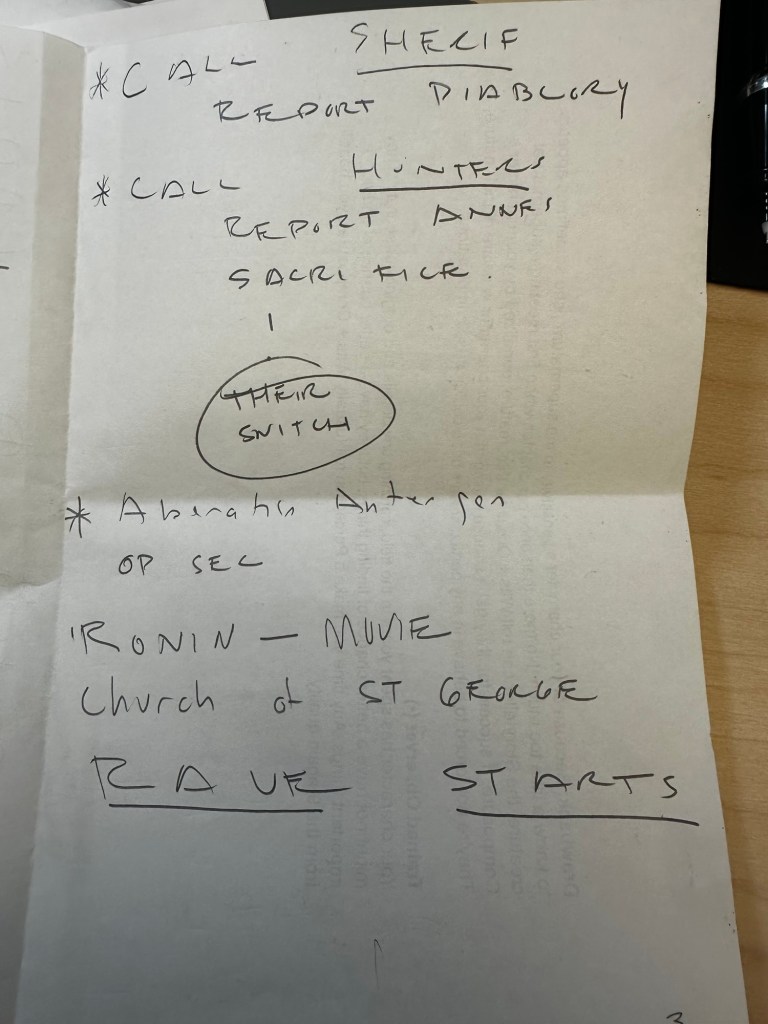 * CALL SHERIF
REPORT DIABLORY
* CALL HUNTERS
REPORT ANNES
SACRIFICE.
THEIR
SNITCH
* Aberation
OP SEC
RONIN – MOVIE
Church of ST GEORGE
RAVE STARTS
3